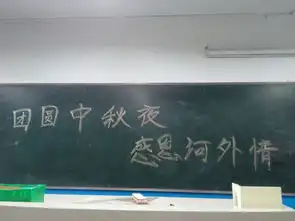 团圆中秋夜
感恩河外情